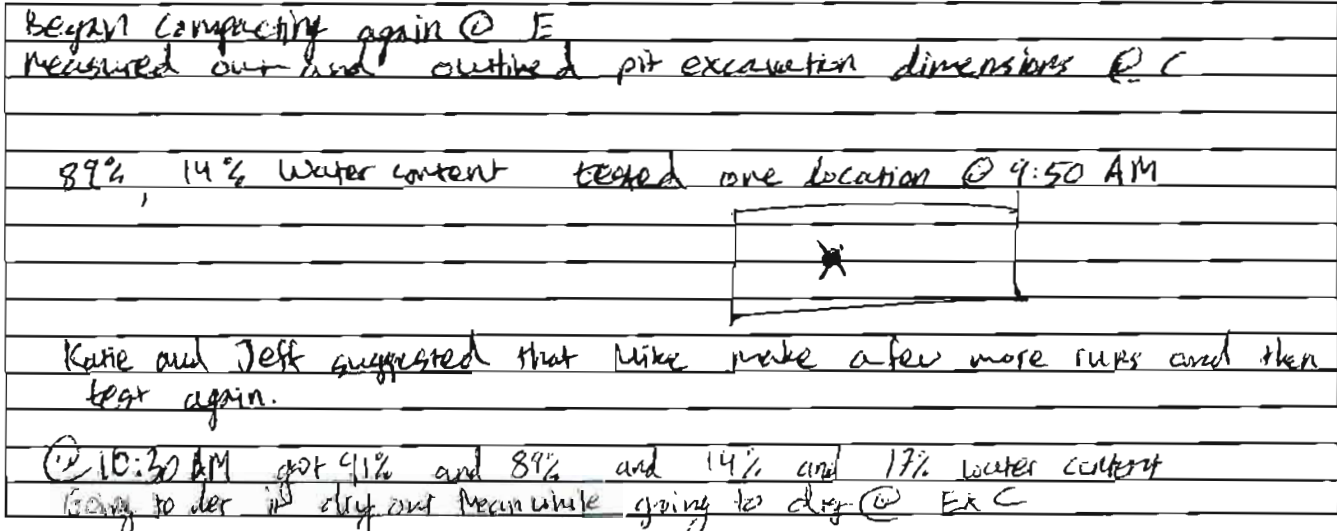 Began compacting again @ E
measured out and outlined pit excavation dimensions @ C
89%, 14% Water content tested one location @ 9:50 AM
Katie and Jeff suggested that Mike make a few more runs and then
test again.
@ 10:30 AM got 91% and 89% and 14% and 17% water content
Going to let it dry out Meanwhile going to dig @ Ex C